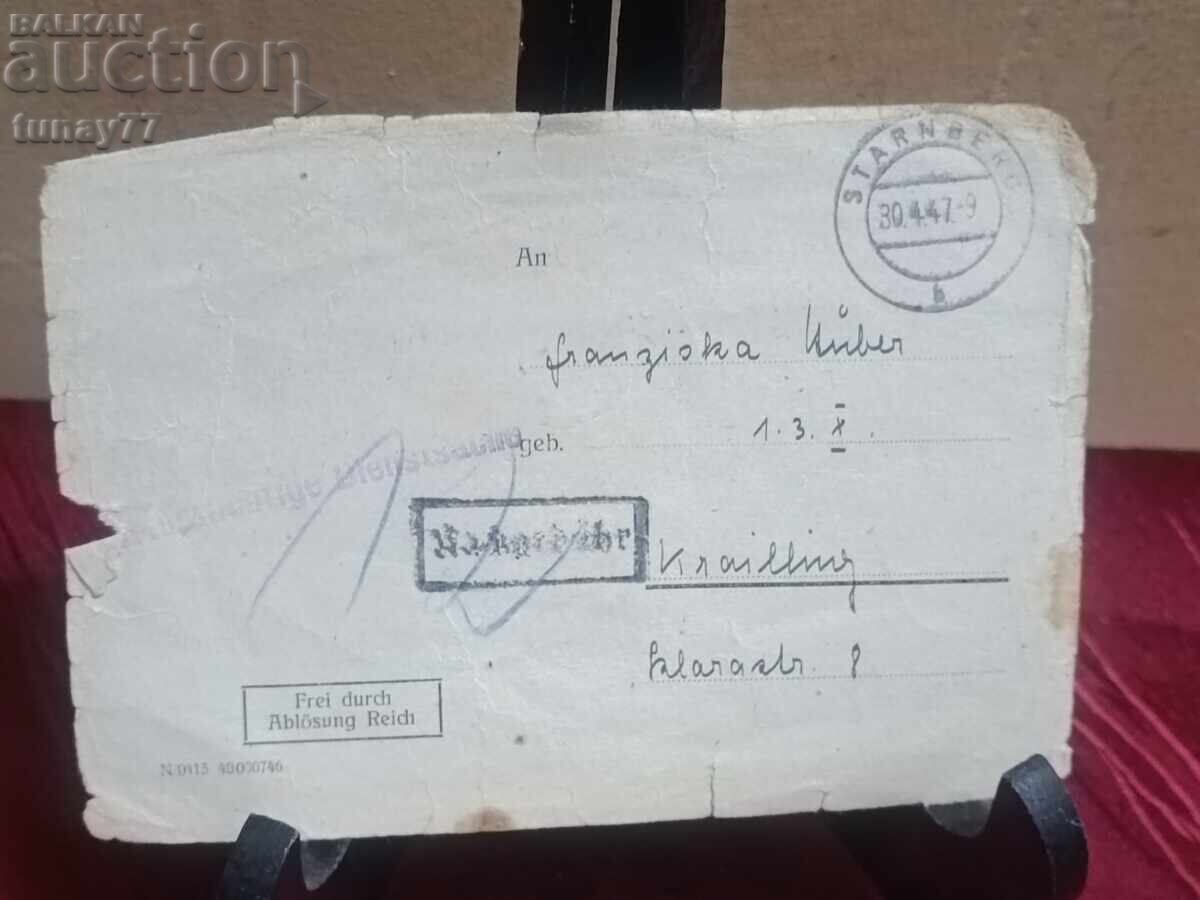 BALKAN
auction
tunay77
STARNBERG
30.4.47.-9
b
An
Franziska Huber
geb. 1. 3. X.
Dienstsache
Nachgebühr
Krailling
Klarastr. 8
Frei durch
Ablösung Reich
N/0415